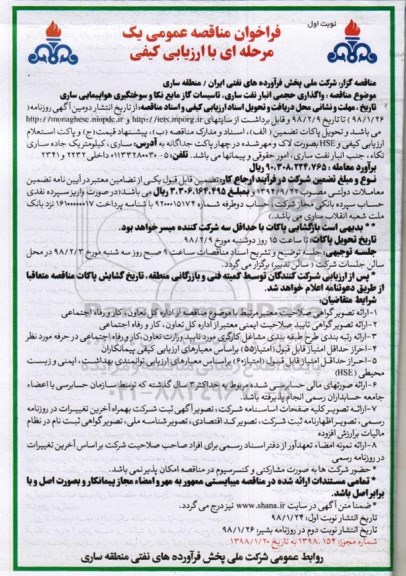 نوبت اول
فراخوان مناقصه عمومی یک
مرحله ای با ارزیابی کیفی
مناقصه گزار: شرکت ملی پخش فرآورده های نفتی ایران / منطقه ساری
موضوع مناقصه: واگذاری حجمی انبار نفت ساری، تاسیسات گاز مایع نکا و سوختگیری هواپیمایی ساری
تاریخ، مهلت و نشانی محل دریافت و تحویل اسناد ارزیابی کیفی و اسناد مناقصه: از تاریخ انتشار دومین آگهی روزنامه (
۹۸/۱/۲۶) تا تاریخ ۹۸/۲/۹ و قابل برداشت از سایتهای http://iets.mporg.ir و http://monaghese.niopdc.ir
می باشد و تحویل پاکات تضمین (الف)، اسناد و مدارک مناقصه (ب)، پیشنهاد قیمت (ج) و پاکت استعلام
ارزیابی کیفی و HSE بصورت لاک و مهر شده در چهار پاکت جداگانه به آدرس: ساری، کیلومتر یک جاده ساری
نکاء، جنب انبار نفت ساری، امور حقوقی و پیمانها می باشد. تلفن: ۵-۰۱۱۳۳۲۸۰۰۳۰ داخلی ۲۲۳۲ و ۲۲۳۱
برآورد معامله: ۹۰.۳۰۸.۲۲۴.۷۶۵ ریال
نوع و مبلغ تضمین شرکت در فرآیند ارجاع کار: تضمین قابل قبول یکی از تضامین معتبر در آیین نامه تضمین
معاملات دولتی مصوب ۱۳۹۴/۹/۲۲ و بمبلغ ۳.۳۰۶.۱۶۴.۴۹۵ ریال می باشد (در صورت واریز سپرده نقدی
حساب سپرده بانکی مجاز شرکت: حساب دوطرفه شماره ۹۲۰۰۰۱۵۱۷۴ با شناسه پرداخت ۱۶۱۰۰۰۰۰۰۱۷ نزد بانک
ملت شعبه انقلاب ساری می باشد.)
** بدیهی است بازگشایی پاکات با حداقل سه شرکت کننده میسر خواهد بود.
تاریخ تحویل پاکات: تا ساعت ۱۵ روز دوشنبه مورخ ۹۸/۲/۹
جلسه توجیهی: جلسه توضیح و تشریح اسناد مناقصات ساعت ۹ صبح روز سه شنبه مورخ ۹۸/۲/۳ در محل
سالن جلسات شرکت (سالن تدبیر) برگزار می گردد.
* پس از ارزیابی شرکت کنندگان توسط کمیته فنی و بازرگانی منطقه، تاریخ گشایش پاکات مناقصه متعاقبا
از طریق دعوتنامه اعلام خواهد شد.
شرایط متقاضیان:
۱-ارائه تصویر گواهی صلاحیت معتبر مرتبط با موضوع مناقصه از اداره کل تعاون، کار و رفاه اجتماعی
۲-ارائه تصویر گواهی تایید صلاحیت ایمنی معتبر از اداره کل تعاون، کار و رفاه اجتماعی
۳-ارائه رتبه بندی طرح طبقه بندی مشاغل کارگری مورد تایید وزارت تعاون، کار و رفاه اجتماعی در حرفه مورد نظر
۴-احراز حداقل امتیاز قابل قبول (امتیاز۵۵) براساس معیارهای ارزیابی کیفی پیمانکاران
۵-احراز حداقل امتیاز قابل قبول (امتیاز۶۰) براساس معیارهای ارزیابی توانمندی بهداشت، ایمنی و زیست
محیطی (HSE)
۶-ارائه صورتهای مالی حسابرسی شده مربوط به حداکثر ۳ سال گذشته که توسط سازمان حسابرسی یا اعضاء
جامعه حسابداران رسمی انجام پذیرفته باشد.
۷-ارائه تصویر کلیه صفحات اساسنامه شرکت، تصویر آگهی ثبت شرکت بهمراه آخرین تغییرات در روزنامه
رسمی، تصویر اظهارنامه ثبت شرکت، تصویر کد اقتصادی، تصویر شناسه ملی، تصویر گواهی ثبت نام در نظام
مالیات برارزش افزوده
۸-ارائه نمونه امضاء تعهدآور از دفتر اسناد رسمی برای افراد صاحب صلاحیت شرکت براساس آخرین تغییرات
در روزنامه رسمی
* حضور شرکت ها به صورت مشارکتی و کنسرسیوم در مناقصه امکان پذیر نمی باشد.
* تمامی مستندات ارائه شده در مناقصه میبایستی ممهور به مهر و امضاء مجاز پیمانکار و بصورت اصل و یا
برابر اصل باشد.
* ضمنا متن آگهی در سایت www.shana.ir نیز درج می گردد.
تاریخ انتشار نوبت اول: ۹۸/۱/۲۴
تاریخ انتشار نوبت دوم در روزنامه بشیر: ۹۸/۱/۲۶
شماره مجوز: ۱۳۹۸.۱۵۴ به تاریخ ۱۳۹۸/۱/۲۰
روابط عمومی شرکت ملی پخش فرآورده های نفتی منطقه ساری